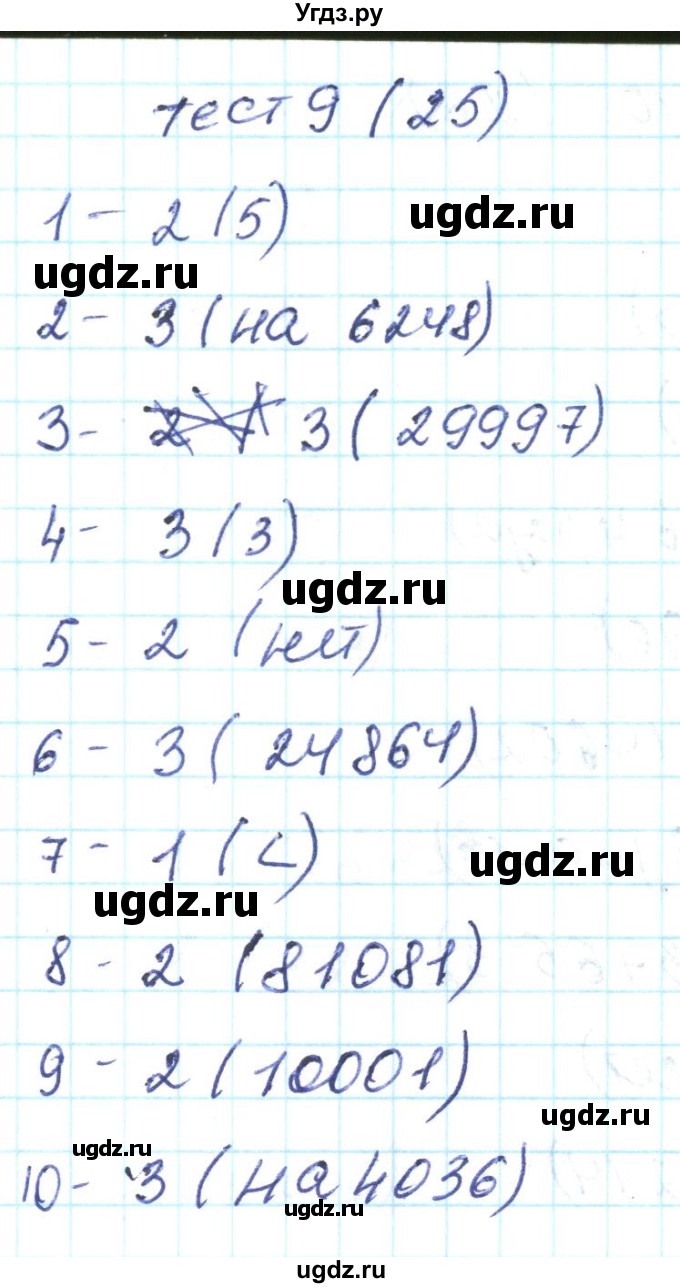 Угдз.ру
тест 9 (25)
1 - 2 (5)
ugdz.ru
ugdz.ru
2 - 3 (на 6248)
3 - 3 (29997)
4 - 3 (3)
ugdz.ru
5 - 2 (нет)
6 - 3 (24864)
7 - 1 (<)
ugdz.ru
ugdz.ru
8 - 2 (81081)
9 - 2 (10001)
ugdz.ru
ugdz.ru
10 - 3 (на 4036)
ugdz.ru
ugdz.ru